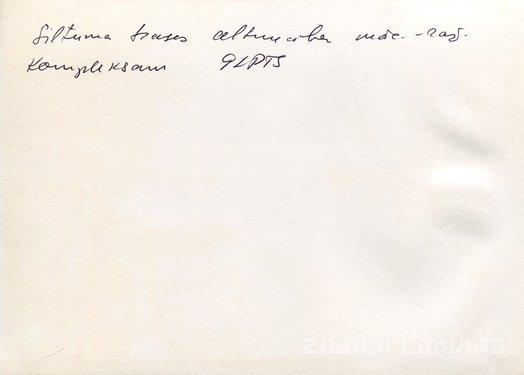 Siltuma trases celtniecība māc.-raž.
Kompleksam 9LPTS
ZUDUSĪ LATVIJA